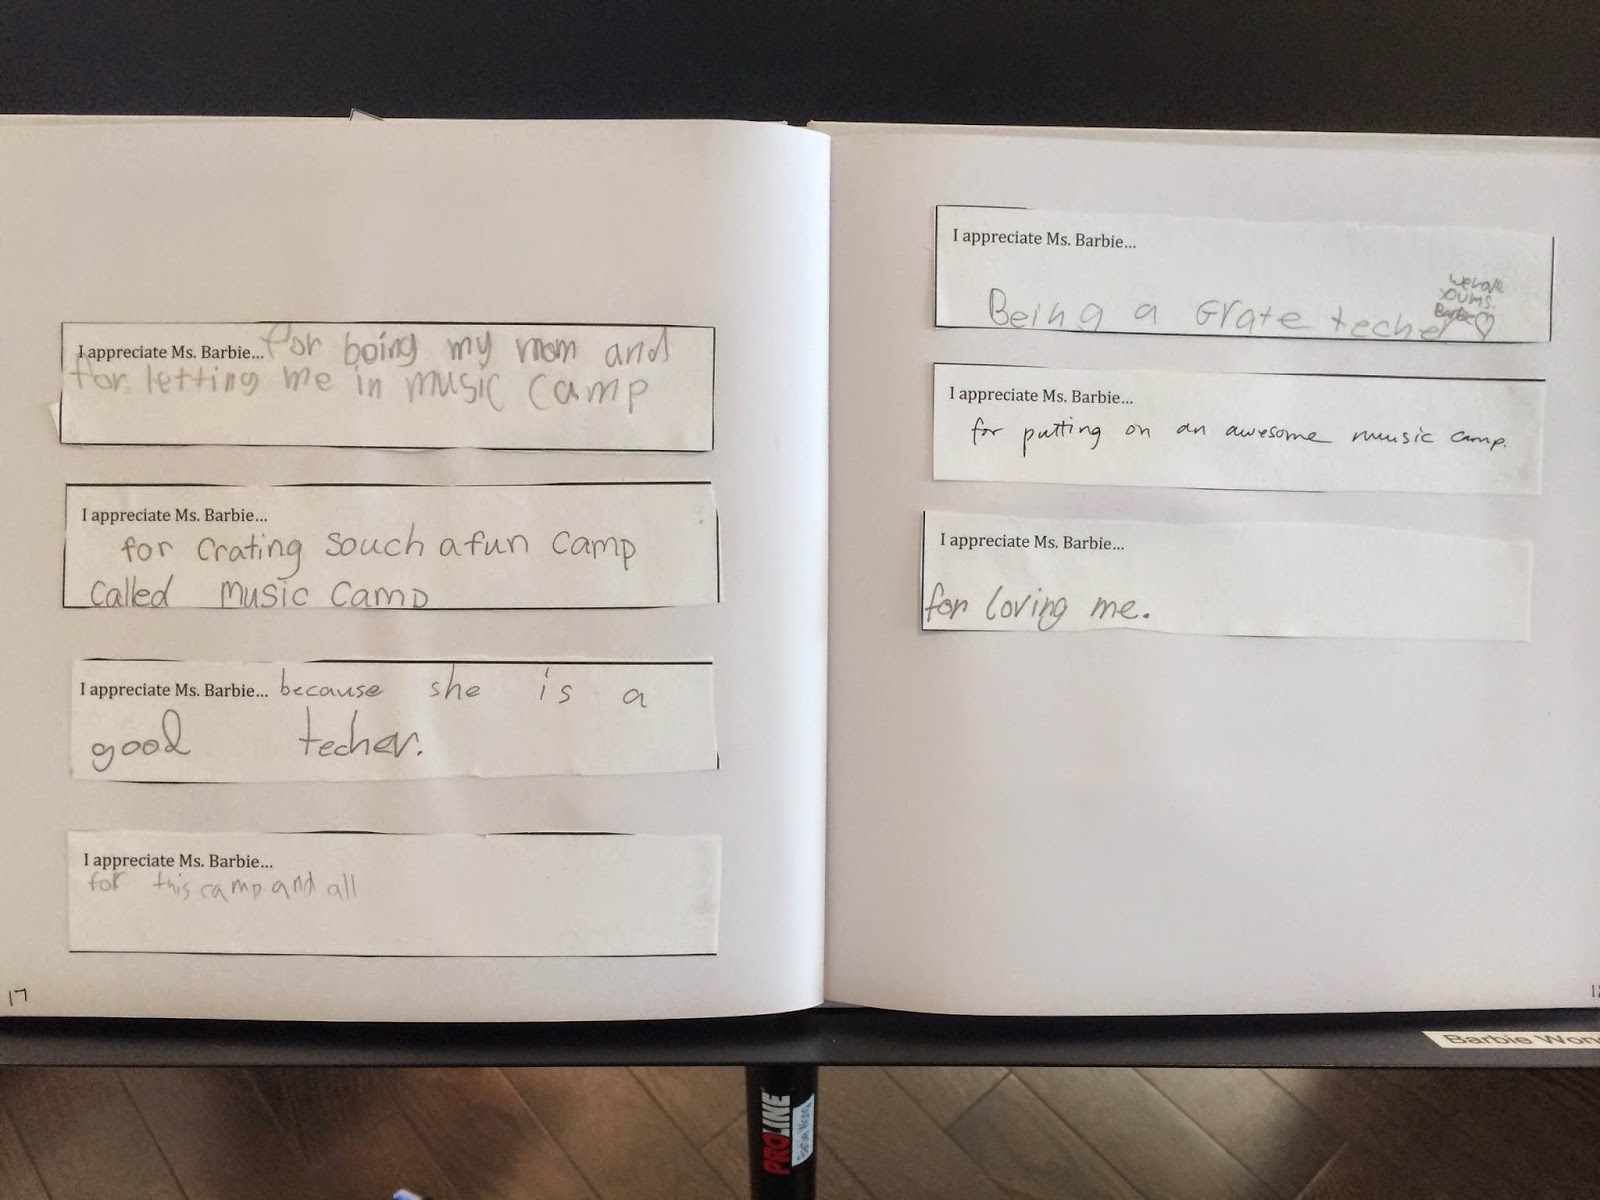 I appreciate Ms. Barbie... for boing my mom and
for letting me in music camp
I appreciate Ms. Barbie...
for Crating Souch a fun camp
Called Music Camp
I appreciate Ms. Barbie... because she is a
good techer.
I appreciate Ms. Barbie...
for this camp and all
17
I appreciate Ms. Barbie...
We love
you ms.
Barbie
Being a Grate techer
I appreciate Ms. Barbie...
for putting on an awesome music camp.
I appreciate Ms. Barbie...
for loving me.
Barbie
PROLINE